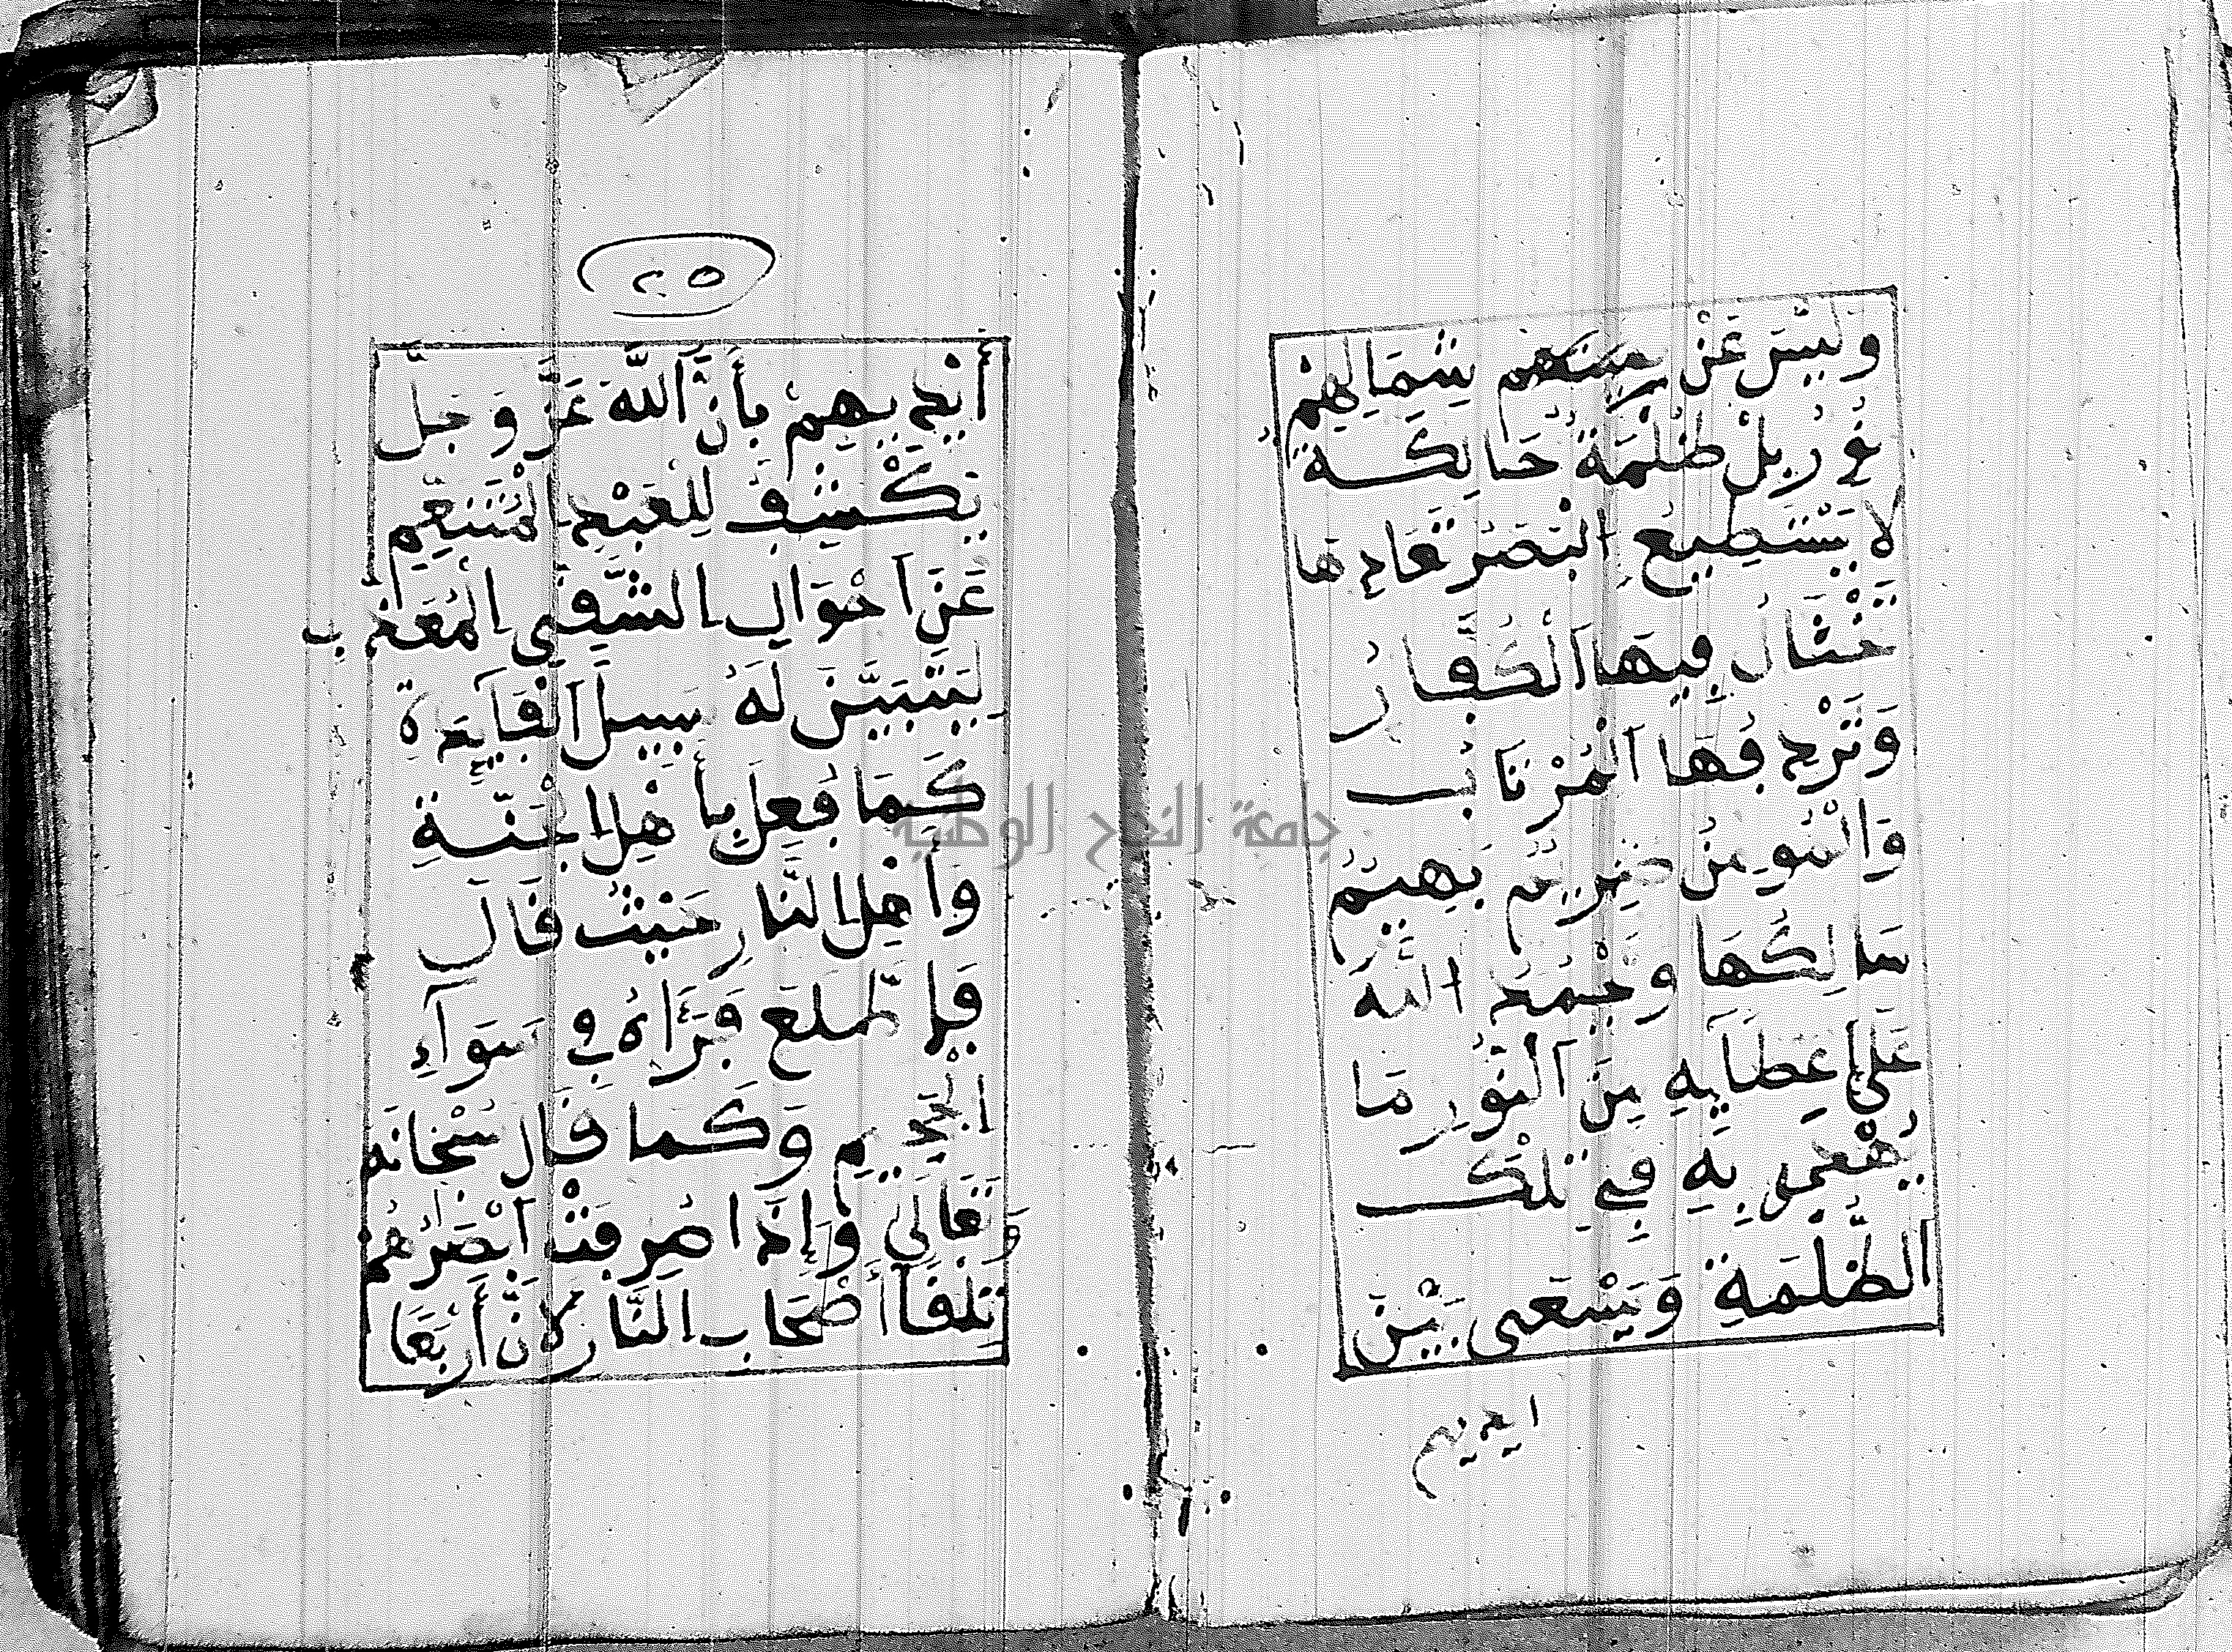 وَلَيْسَ عَنْ يمينهم شِمَالِهِمْ
نُورُ بَلْ ظُلْمَةٌ حَالِكَةٌ
لَا يَسْتَطِيعُ الْبَصَرُ
فِيهَا الْكُفَّارُ
وَ الْمُرْتَابُ
وَالْمُومِنُ بَهِيمٌ
سَالِكُهَا وَيَحْمَدُ اللَّهَ
عَلَى عَطَايِهِ مِنَ النُّورِ مَا
بِهِ فِي تِلْكَ
الظُّلْمَةِ وَيَسْعَى بَيْنَ
ايديهم
٢٥
أَيْدِيهِمْ بِأَنَّ اللَّهَ عَزَّ وَجَلَّ
يَكْشِفُ لِلْعَبْدِ الْمُتَنَعِّمِ
عَنْ أَحْوَالِ الشَّقِيِّ الْمُعَذَّبِ
لِيَتَبَيَّنَ لَهُ سَبِيلَ الْفَايِدَةِ
كَمَا فُعِلَ بِأَهْلِ الْجَنَّةِ
وَأَهْلِ النَّارِ حَيْثُ قَالَ
فَاطَّلَعَ فَرَءَاهُ فِي سَوَآءِ
الْجَحِيمِ وَكَمَا قَالَ سُبْحَانَهُ
وَتَعَالَى وَإِذَا صُرِفَتْ أَبْصَرُهُمْ
تِلْقَآ أَصْحَابِ النَّارِ لِأَنَّ أَرْبَعًا
جامعة النجاح الوطنية